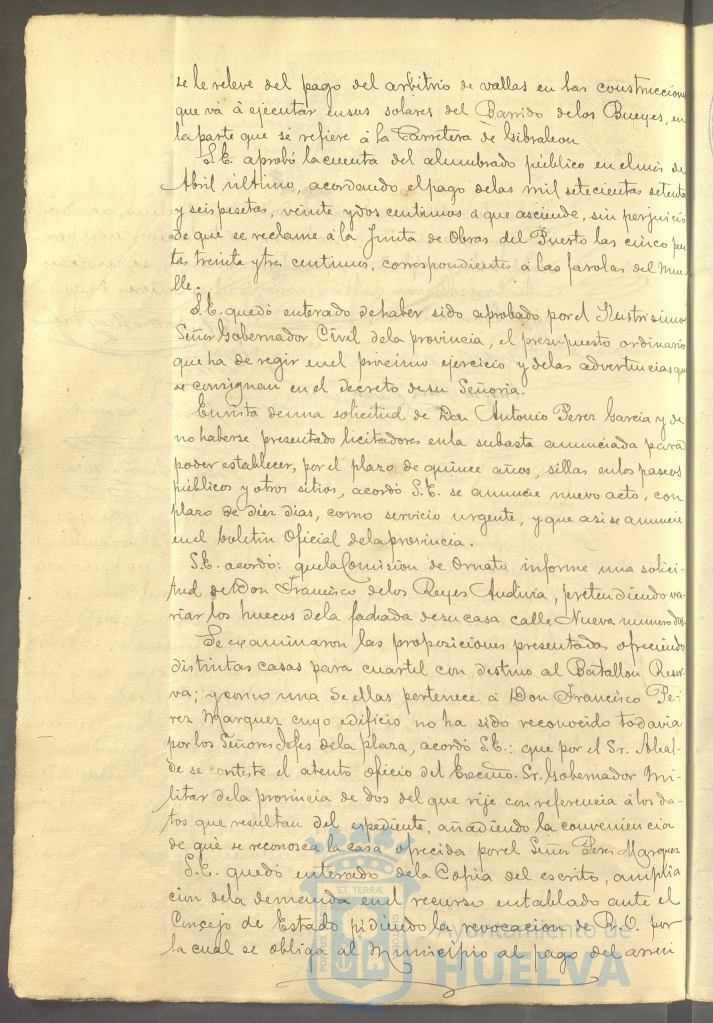 se le releve del pago del arbitrio de vallas en las construcciones
que vá á ejecutar en sus solares del Barrido de los Bueyes, en
la parte que se refiere á la Carretera de Gibraleon
S.E. aprobó la cuenta del alumbrado público en el mes de
Abril último, acordando el pago de las mil setecientas setenta
y seis pesetas, veinte y dos centimos á que asciende, sin perjuicio
de que se reclame á la Junta de Obras del Puerto las cinco pese
tas treinta y tres centimos, correspondientes á las farolas del Mue
lle.
S.E. quedó enterado de haber sido aprobado por el Ilustrisimo
Señor Gobernador Civil de la provincia, el presupuesto ordinario
que ha de regir en el procsimo ejercicio y de las advertencias que
se consignan en el decreto de su Señoria.
En vista de una solicitud de Don Antonio Perez Garcia y de
no haberse presentado licitadores en la subasta anunciada para
poder establecer, por el plazo de quince años, sillas en los paseos
públicos y otros sitios, acordó S.E. se anuncie nuevo acto, con
plazo de diez dias, como servicio urgente, y que asi se anuncie
en el boletin Oficial de la provincia.
S.E. acordó: que la Comision de Ornato, informe una solici-
tud de Don Francisco de los Reyes Audivia, pretendiendo va
riar los huecos de la fachada de su casa, calle Nueva numero dos.
Se examinaron las proposiciones presentadas ofreciendo
distintas casas para cuartel con destino al Batallon Reser
va; y como una de ellas pertenece á Don Francisco Pe-
rez Marquez cuyo edificio no ha sido reconocido todavia
por los Señores Jefes de la plaza, acordó S.E.: que por el Sr. Alcal-
de se conteste el atento oficio del Excmo. Sr. Gobernador Mi-
litar de la provincia de dos del que rije con referencia á los da-
tos que resultan del espediente, añadiendo la conveniencia
de que se reconosca la casa ofrecida por el Señor Perez Marquez
S.E. quedó enterado de la Copia del escrito, amplia
cion de la demanda en el recurso entablado ante el
Concejo de Estado pidiendo la revocacion de R.O. por
la cual se obliga al Municipio al pago del arren
ET TERRÆ
PORTUS
CUSTODIA
Ayuntamiento de
HUELVA